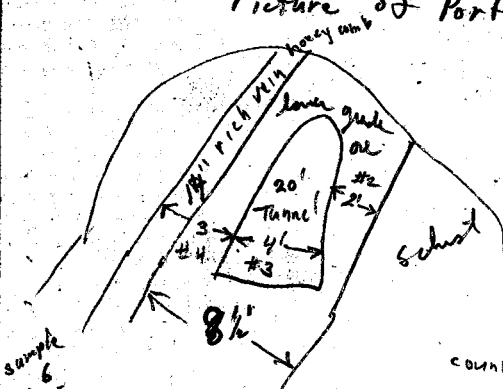 Picture of Port
honey comb
rich vein
lower grade
ore
20'
Tunnel
#2
2'
3
#4
4'
#3
schist
8½'
sample
6
count